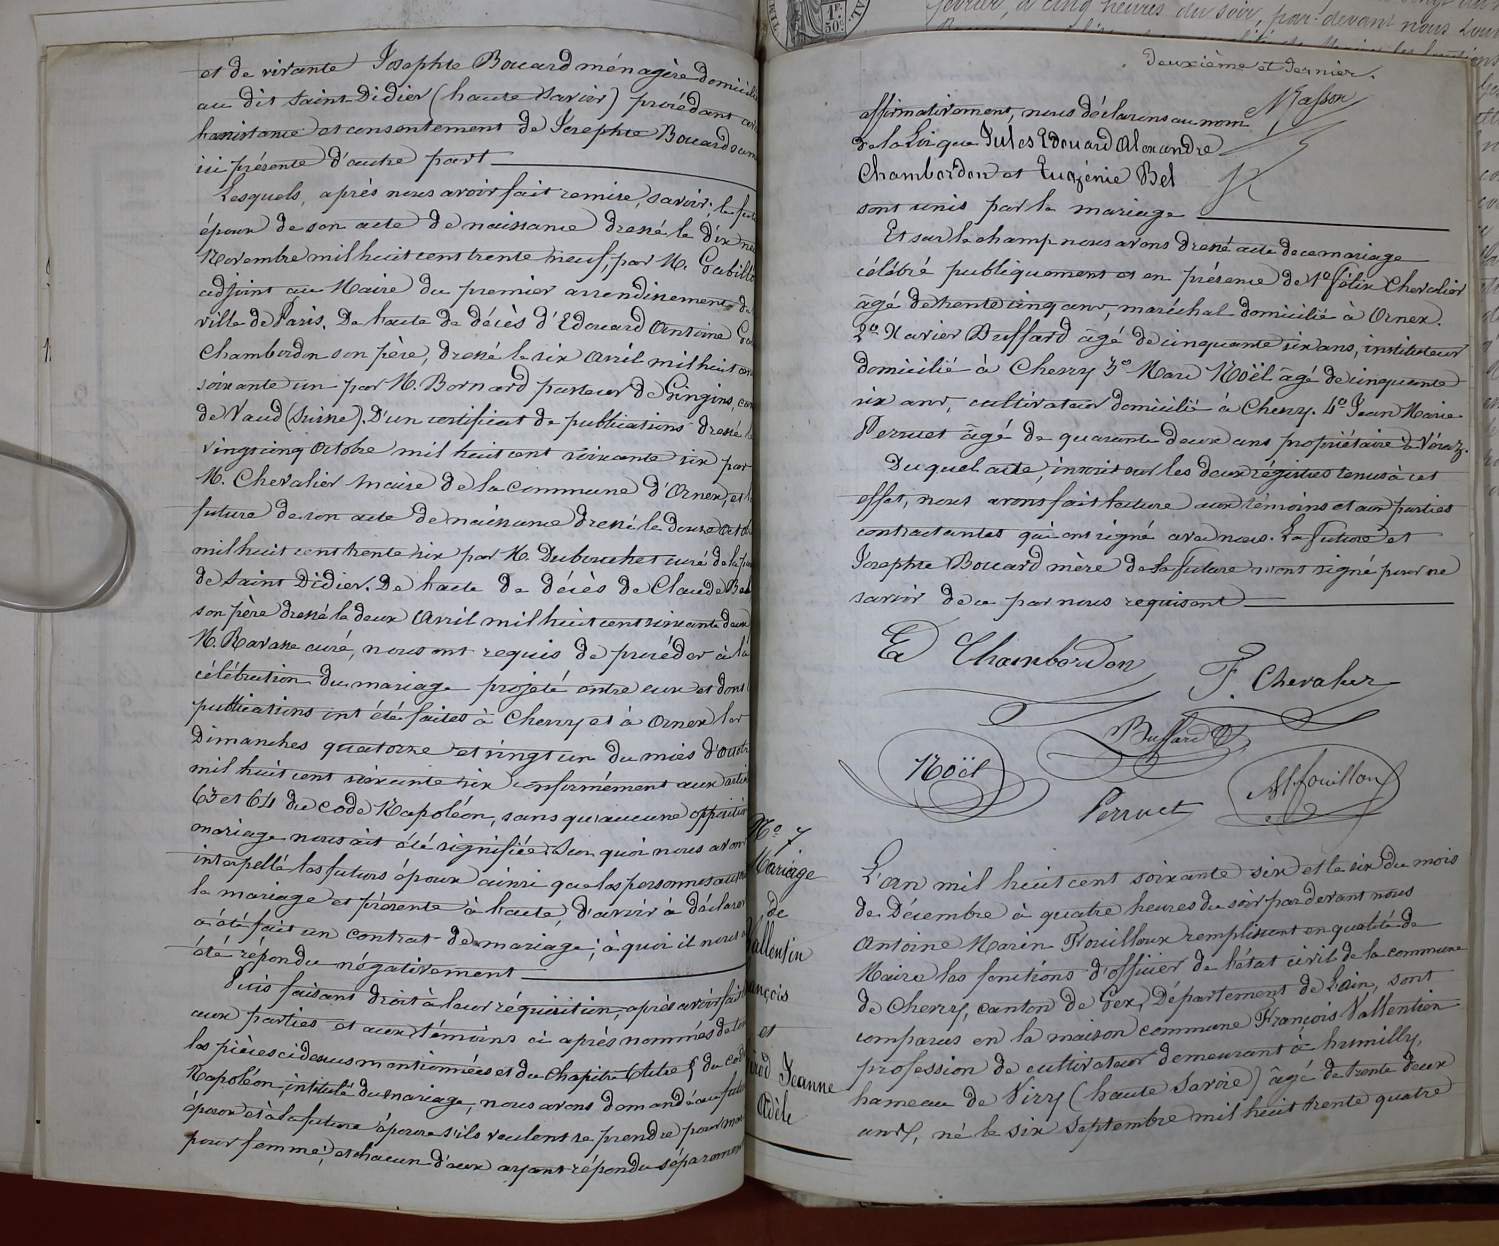 et de vivante Josephte Bouard ménagère domicilié
au dit Saint Didier (haute Savoie) procédant avec
l'assistance et consentement de Josephte Bouard sa mère
ici présente d'autre part
Lesquels, après nous avoir fait remise, savoir; le futur
époux de son acte de naissance dressé le dix neuf
Novembre mil huit cent trente neuf, par M.
adjoint au Maire du premier arrondissement de
ville de Paris. De l'acte de décès d'Edouard Antoine
Chambordon son père, dressé le six Avril mil huit cent
soixante un par M. Bornard pasteur de Gingins, can
de Vaud (Suisse). D'un certificat de publications dressé le
vingt cinq Octobre mil huit cent soixante six par
M. Chevalier Maire de la commune d'Ornex, et la
future de son acte de naissance dressé le douze Octobre
mil huit cent trente six par M. Dubouchet curé de la
de Saint Didier. De l'acte de décès de Claude Bel
son père dressé le deux Avril mil huit cent soixante deux
M. Ravasse curé, nous ont requis de procéder à la
célébration du mariage projeté entre eux et dont
publications ont été faites à Chevry et à Ornex les
Dimanches quatorze et vingt un du mois d'Octobre
mil huit cent soixante six conformément aux articles
63 et 64 du code Napoléon, sans qu'aucune opposition
mariage nous ait été signifiée. Sur quoi nous avons
interpellé les futurs époux ainsi que les personnes
le mariage et présente à l'acte, d'avoir à déclarer
a été fait un contrat de mariage; à quoi il nous a
été répondu négativement
Puis faisant droit à leur réquisition, après avoir fait
aux parties et aux témoins ci après nommés
les pièces ci dessus mentionnées et du Chapitre titre 5 du code
Napoléon, intitulé du mariage, nous avons demandé au futur
époux et à la future épouse s'ils veulent se prendre pour mari
pour femme, et chacun d'eux ayant répondu séparément
deuxième et dernier.
affirmativement, nous déclarons au nom
Masson
de la Loi que Jules Edouard Alexandre
Chambordon et Eugénie Bel
sont unis par le mariage
Et sur le champ nous avons dressé acte de ce mariage
célébré publiquement et en présence de 1º Félix Chevalier
âgé de trente cinq ans, maréchal domicilié à Ornex.
2º Xavier Buffard âgé de cinquante six ans, instituteur
domicilié à Chevry 3º Marc Noël âgé de cinquante
six ans, cultivateur domicilié à Chevry. 4º Jean Marie
Perruet âgé de quarante deux ans propriétaire à Véraz.
Du quel acte, inscrit sur les deux régistres tenus à cet
effet, nous avons fait lecture aux témoins et aux parties
contractantes qui ont signé avec nous. La future et
Josephte Bouard mère de la future n'ont signé pour ne
savoir de ce par nous requisent
Ed Chambordon
F. Chevalier
Buffard
Noël
Perruet
Nº 7
Mariage
de
Vallentin
François
et
Jeanne
Adèle
L'an mil huit cent soixante six et le six du mois
de Décembre à quatre heures du soir par devant nous
Antoine Marin Trouilloux remplissent en qualité de
Maire les fonctions d'officier de l'état civil de la commune
de Chevry, canton de Gex, Département de l'Ain, sont
comparus en la maison commune François Vallentien
profession de cultivateur demeurant à humilly,
hameau de Viry (haute Savoie) âgé de trente deux
ans, né le six Septembre mil huit trente quatre